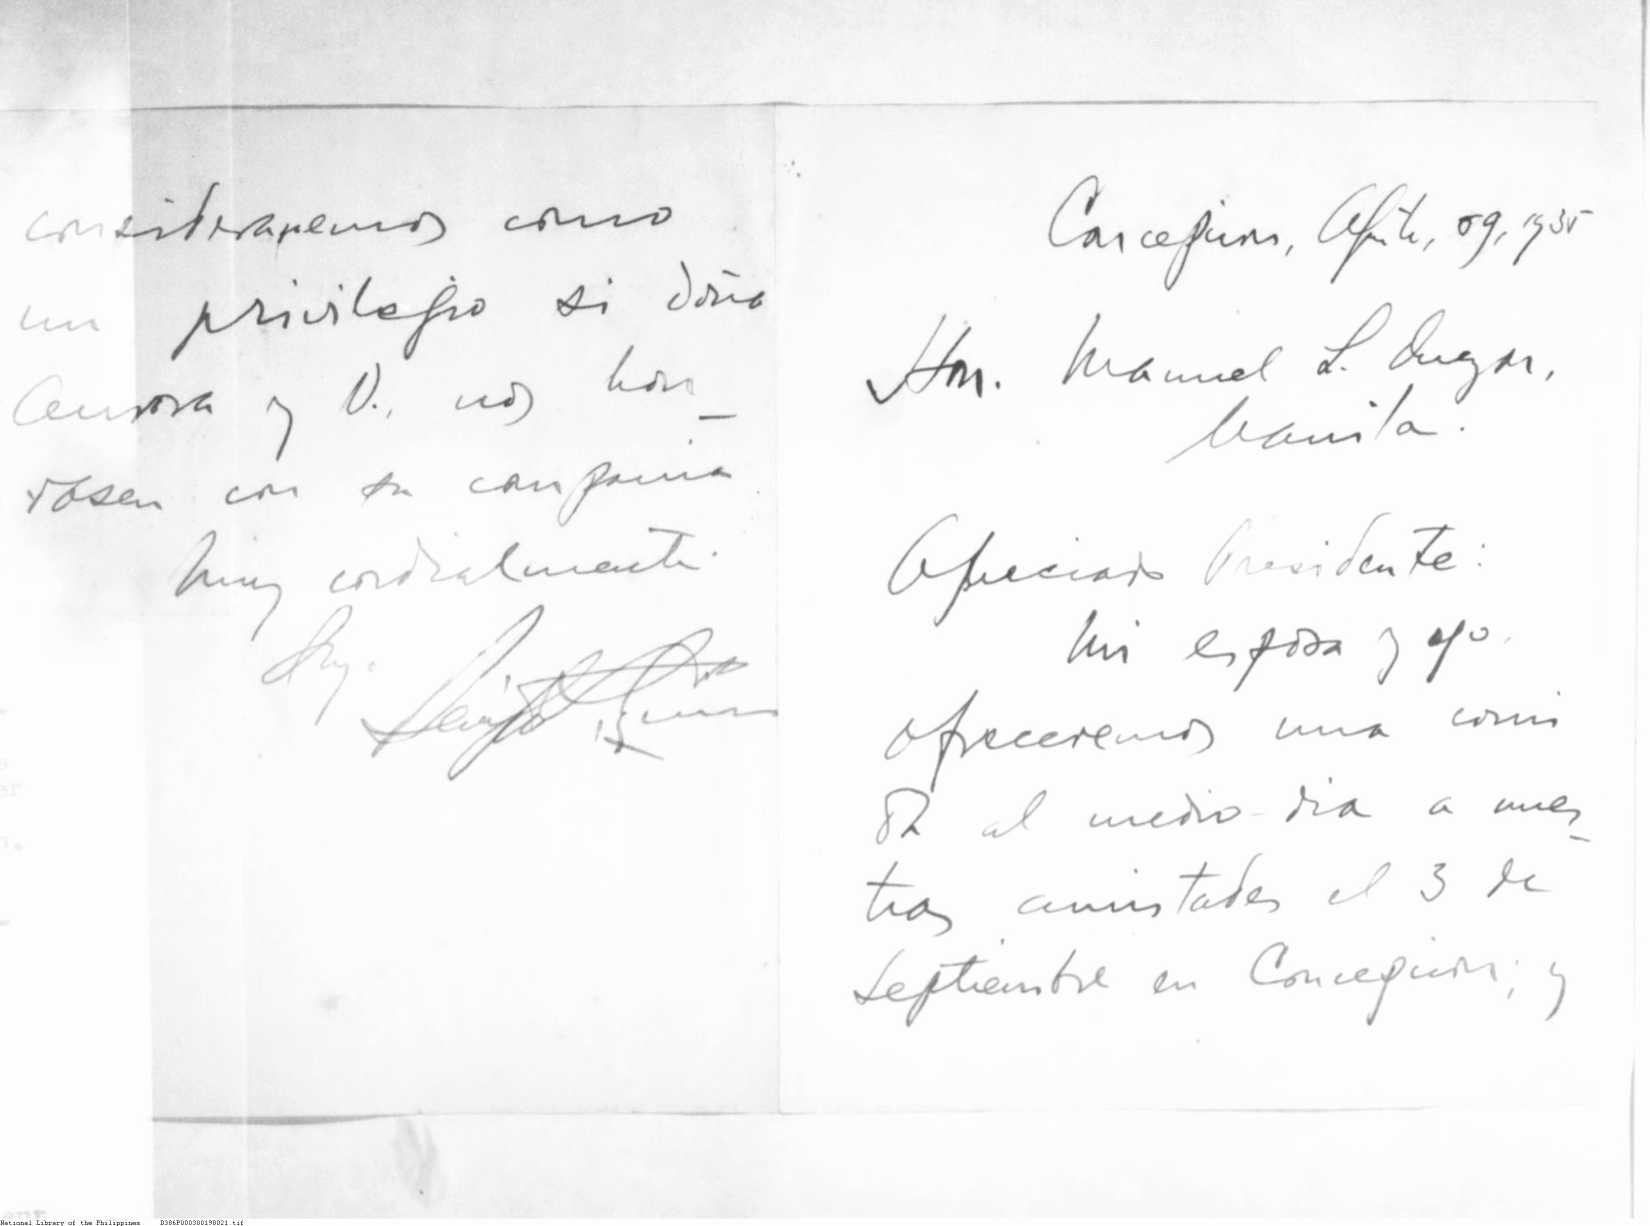 Concepcion, Agto, 09, 1935
Hon. Manuel L. Quezon,
Manila.
Apreciado Presidente:
Mi esposa y yo
ofreceremos una comi
da al medio-dia a nues_
tras amistades el 3 de
Septiembre en Concepcion; y
consideraremos como
un privilegio si doña
Aurora y V., nos hon_
rasen con su compania
Muy cordialmente
National Library of the Philippines D386P000300198021.tif